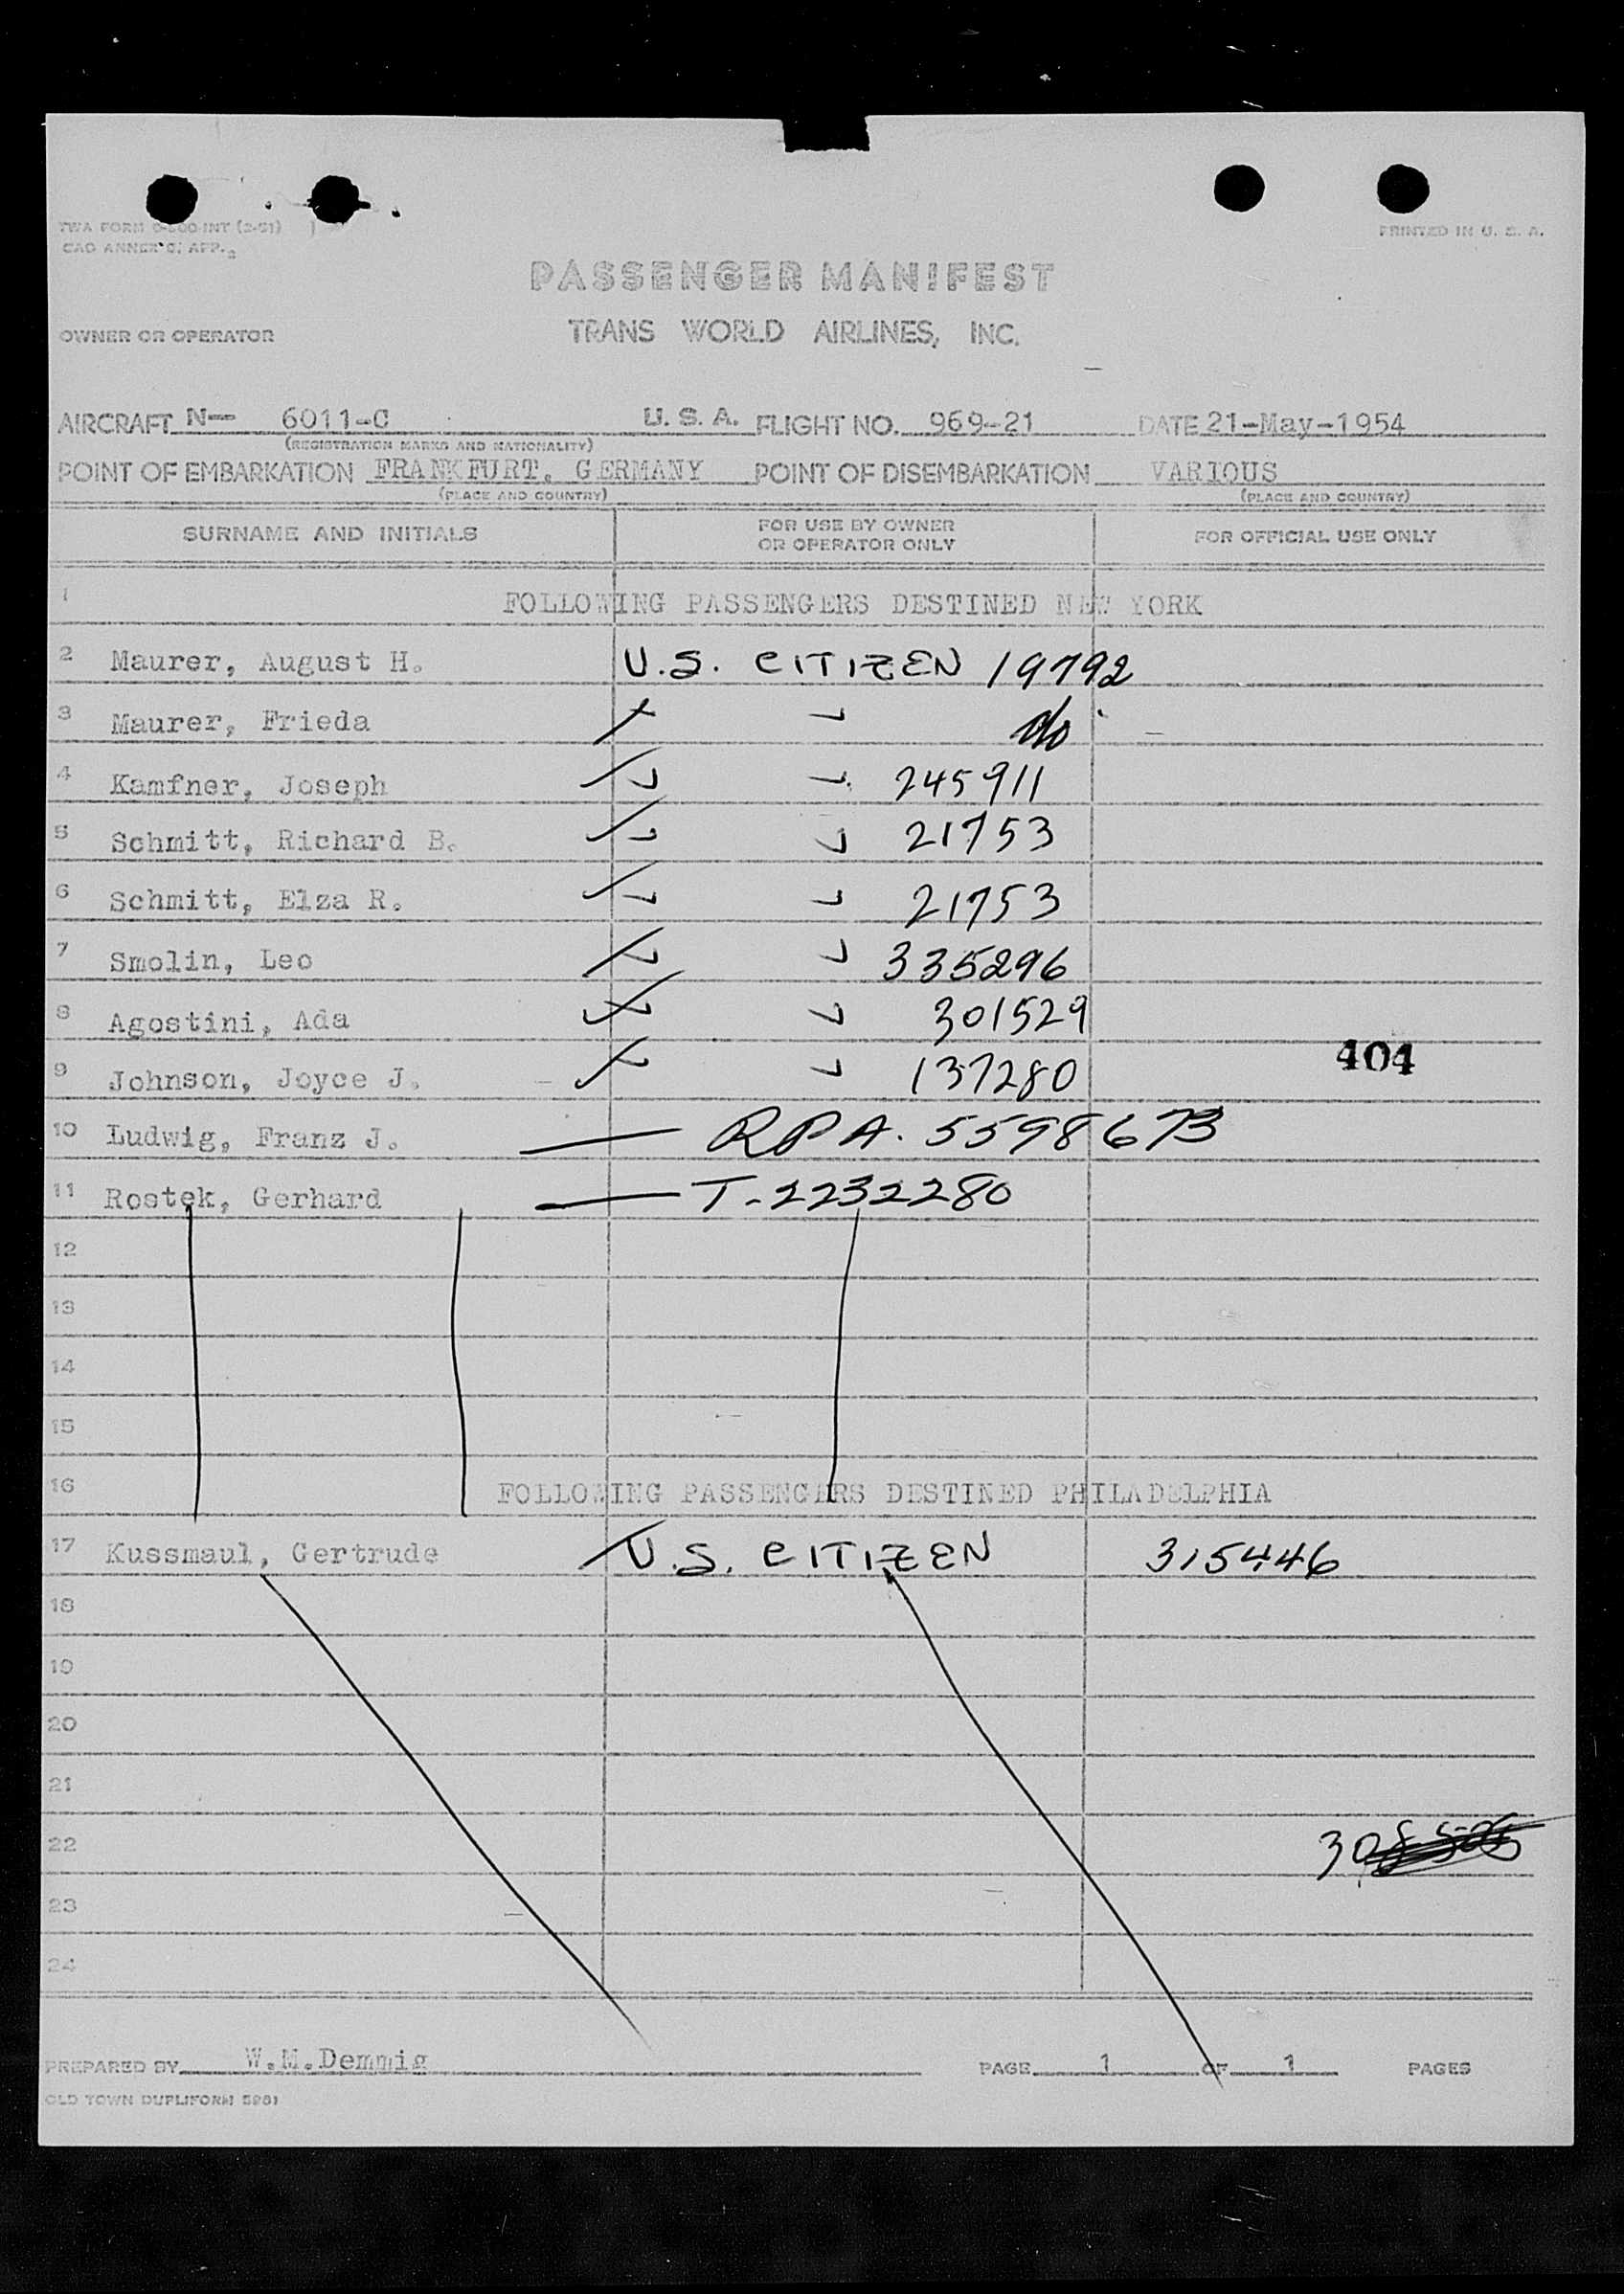 TWA FORM O-200-INT (2-51)
PRINTED IN U. S. A.
CAO ANNEX 9, APP. 2
PASSENGER MANIFEST
OWNER OR OPERATOR TRANS WORLD AIRLINES, INC.
AIRCRAFT N- 6011-C U. S. A. FLIGHT NO. 969-21 DATE 21-May-1954
(REGISTRATION MARKS AND NATIONALITY)
POINT OF EMBARKATION FRANKFURT, GERMANY POINT OF DISEMBARKATION VARIOUS
(PLACE AND COUNTRY) (PLACE AND COUNTRY)
SURNAME AND INITIALS FOR USE BY OWNER OR OPERATOR ONLY FOR OFFICIAL USE ONLY
1 FOLLOWING PASSENGERS DESTINED NEW YORK
2 Maurer, August H. U.S. CITIZEN 19792
3 Maurer, Frieda do
4 Kamfner, Joseph 245911
5 Schmitt, Richard B. 21753
6 Schmitt, Elza R. 21753
7 Smolin, Leo 335296
8 Agostini, Ada 301529
404
9 Johnson, Joyce J. 137280
10 Ludwig, Franz J. — RPA. 5598673
11 Rostek, Gerhard — T-2232280
12
13
14
15
16 FOLLOWING PASSENGERS DESTINED PHILADELPHIA
17 Kussmaul, Gertrude U.S. CITIZEN 315446
18
19
20
21
22 30
23
24
PREPARED BY W.M.Demmig PAGE 1 OF 1 PAGES
OLD TOWN DUPLIFORM 5981